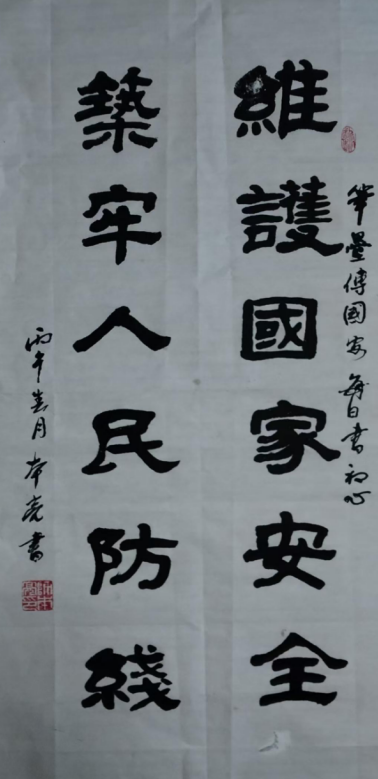 筆墨傳國安 每日書初心
維護國家安全
築牢人民防綫
丙午春月 本亮書